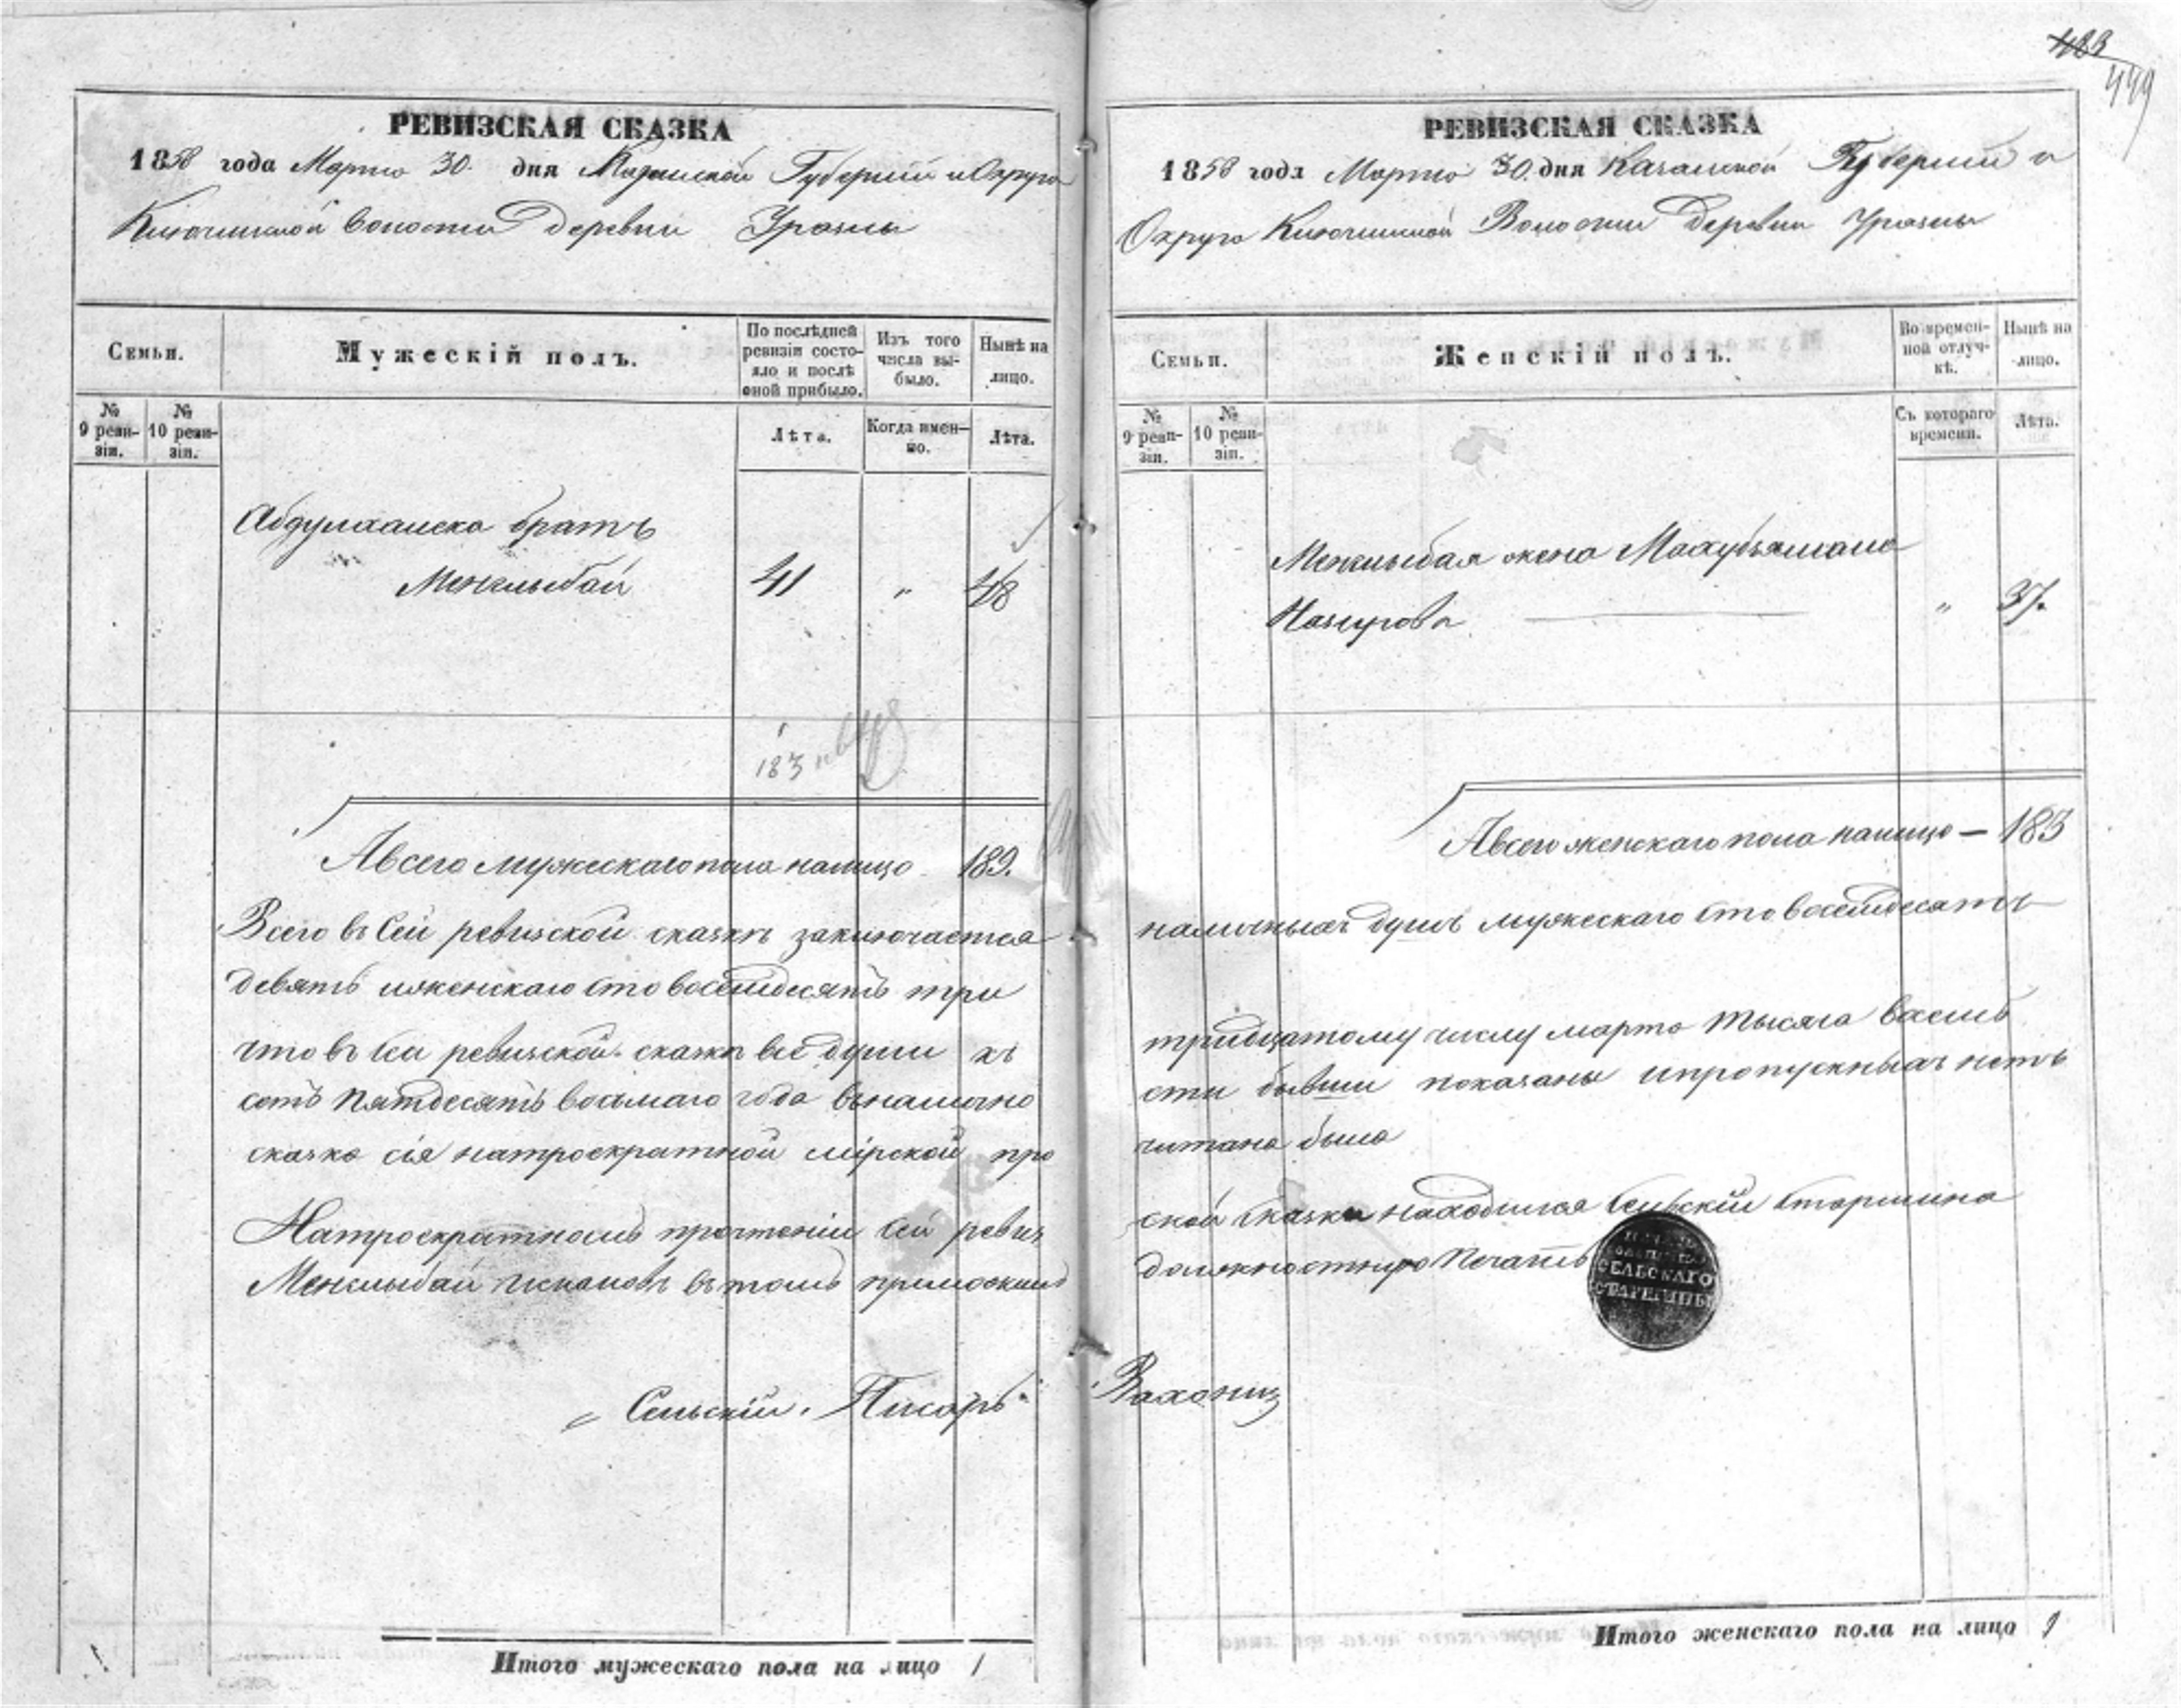 483
449
РЕВИЗСКАЯ СКАЗКА
1858 года Марта 30. дня Казанской Губерніи и Округа
Ключинской Волости Деревни Уразлы
Семьи.
Мужескій полъ.
По послѣдней ревизіи состояло и послѣ оной прибыло.
Изъ того числа выбыло.
Нынѣ на лицо.
№ 9 ревизіи.
№ 10 ревизіи.
Лѣта.
Когда именно.
Лѣта.
Абдулханека братъ
Менглыбай 41 " 48
183
Авсего мужескаго пола налицо 189.
Всего въ сей ревизской сказкѣ заключается
девять иженскаго сто восемдесятъ три
что въ сей ревизской сказкѣ все души къ
сотъ пятдесятъ восьмаго года вналично
сказка сія натроекратной мірской про
Натроекратномъ прочтеніи сей ревиз
Менглыбай въ томъ приложилъ
Сельскій Писарь
Итого мужескаго пола на лицо 1
РЕВИЗСКАЯ СКАЗКА
1858 года Марта 30. дня Казанской Губерніи и
Округа Ключинской Волости Деревни Уразлы
Семьи.
Женскій полъ.
Во временной отлучкѣ.
Нынѣ на лицо.
№ 9 ревизіи.
№ 10 ревизіи.
Съ котораго времени.
Лѣта.
Менглыбая жена Махубзямала
Назирова " 37.
Авсего женскаго пола налицо — 183
наличныхъ душъ мужескаго сто восемдесятъ
тридцатому числу марта тысяча восемь
сти бывши показаны ипропускныхъ нетъ
читана была
ской сказки находился Сельскій Старшина
должностную Печать
СЕЛЬСКАГО
СТАРШИНЫ
Итого женскаго пола на лицо 1